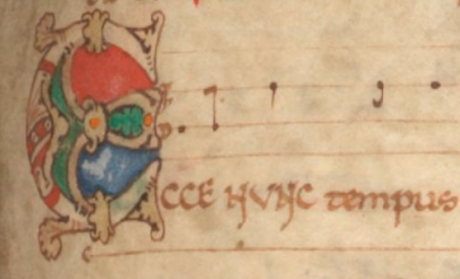 ECCE NVNC tempus